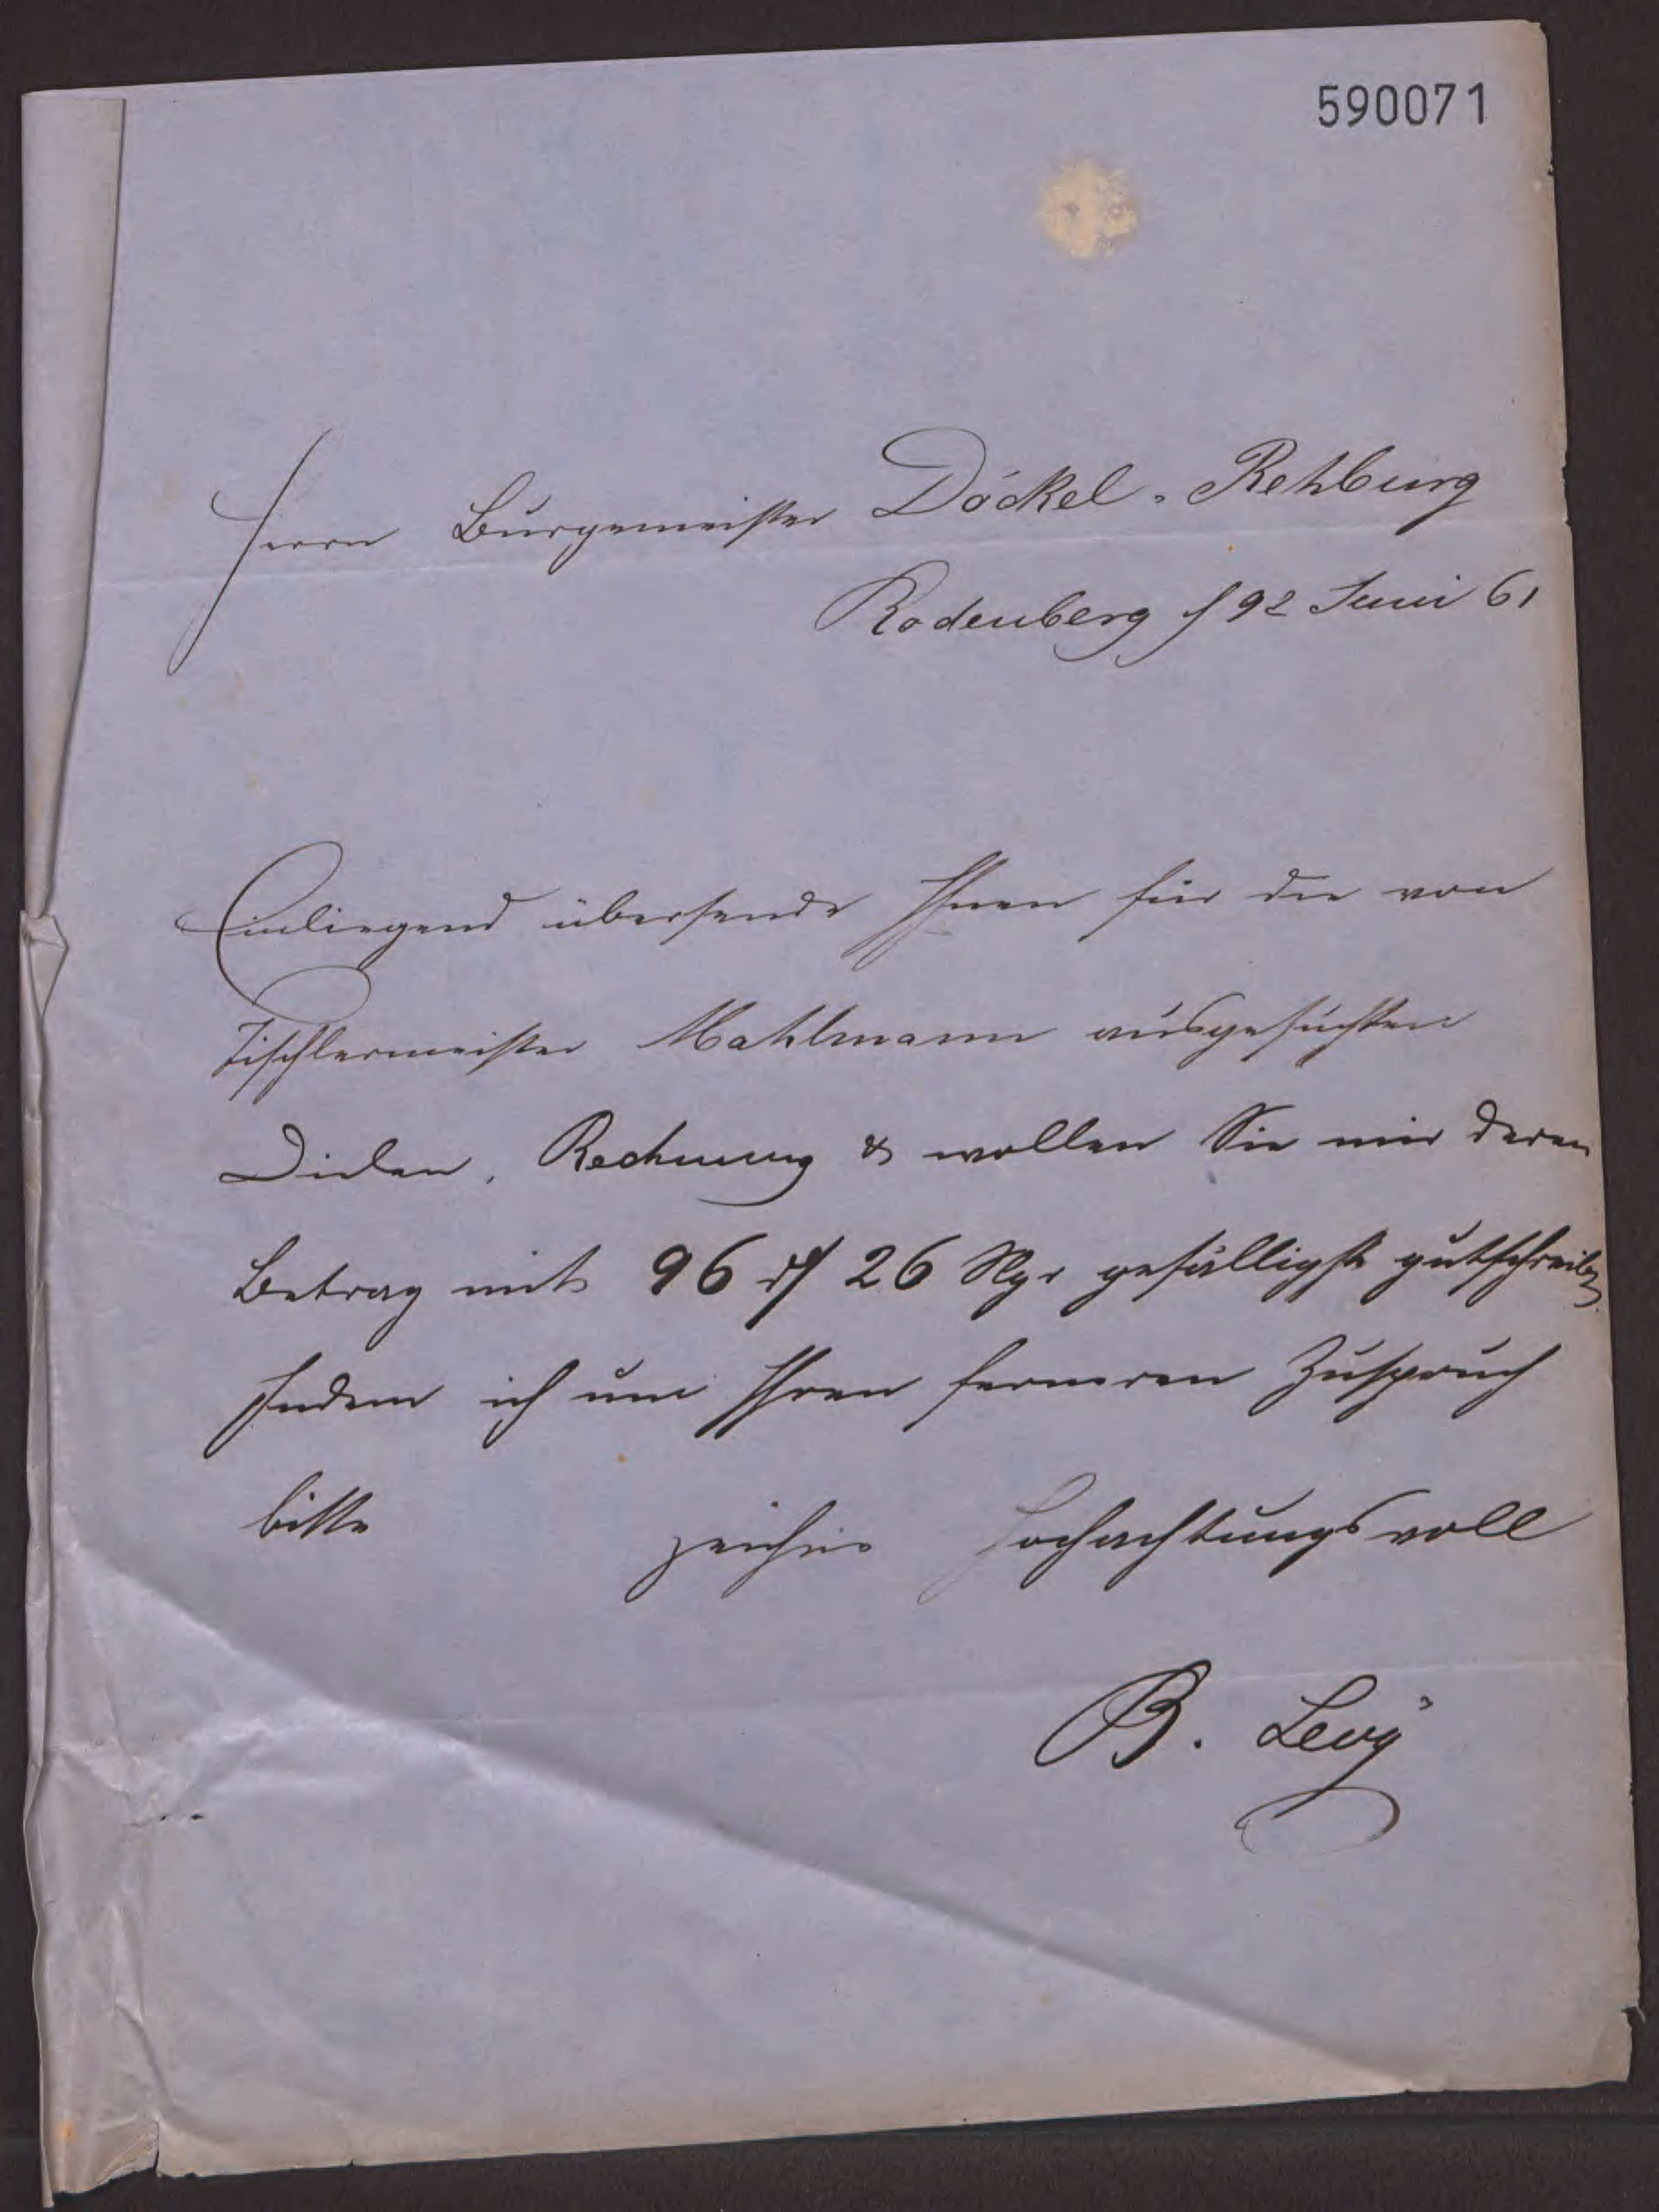 590071
Herrn Burgemeister Döckel. Rehburg
Rodenberg 2 Juni 61
Einliegend übersende Ihnen für die von
Tischlermeister Mahlmann ausgesuchten
Dielen, Rechnung & wollen Sie mir deren
Betrag mit 96 rℓ 26 Ngr gefälligst gutschreiben
Indem ich um Ihren ferneren Zuspruch
bitte zeichne hochachtungsvoll
B. Levÿ